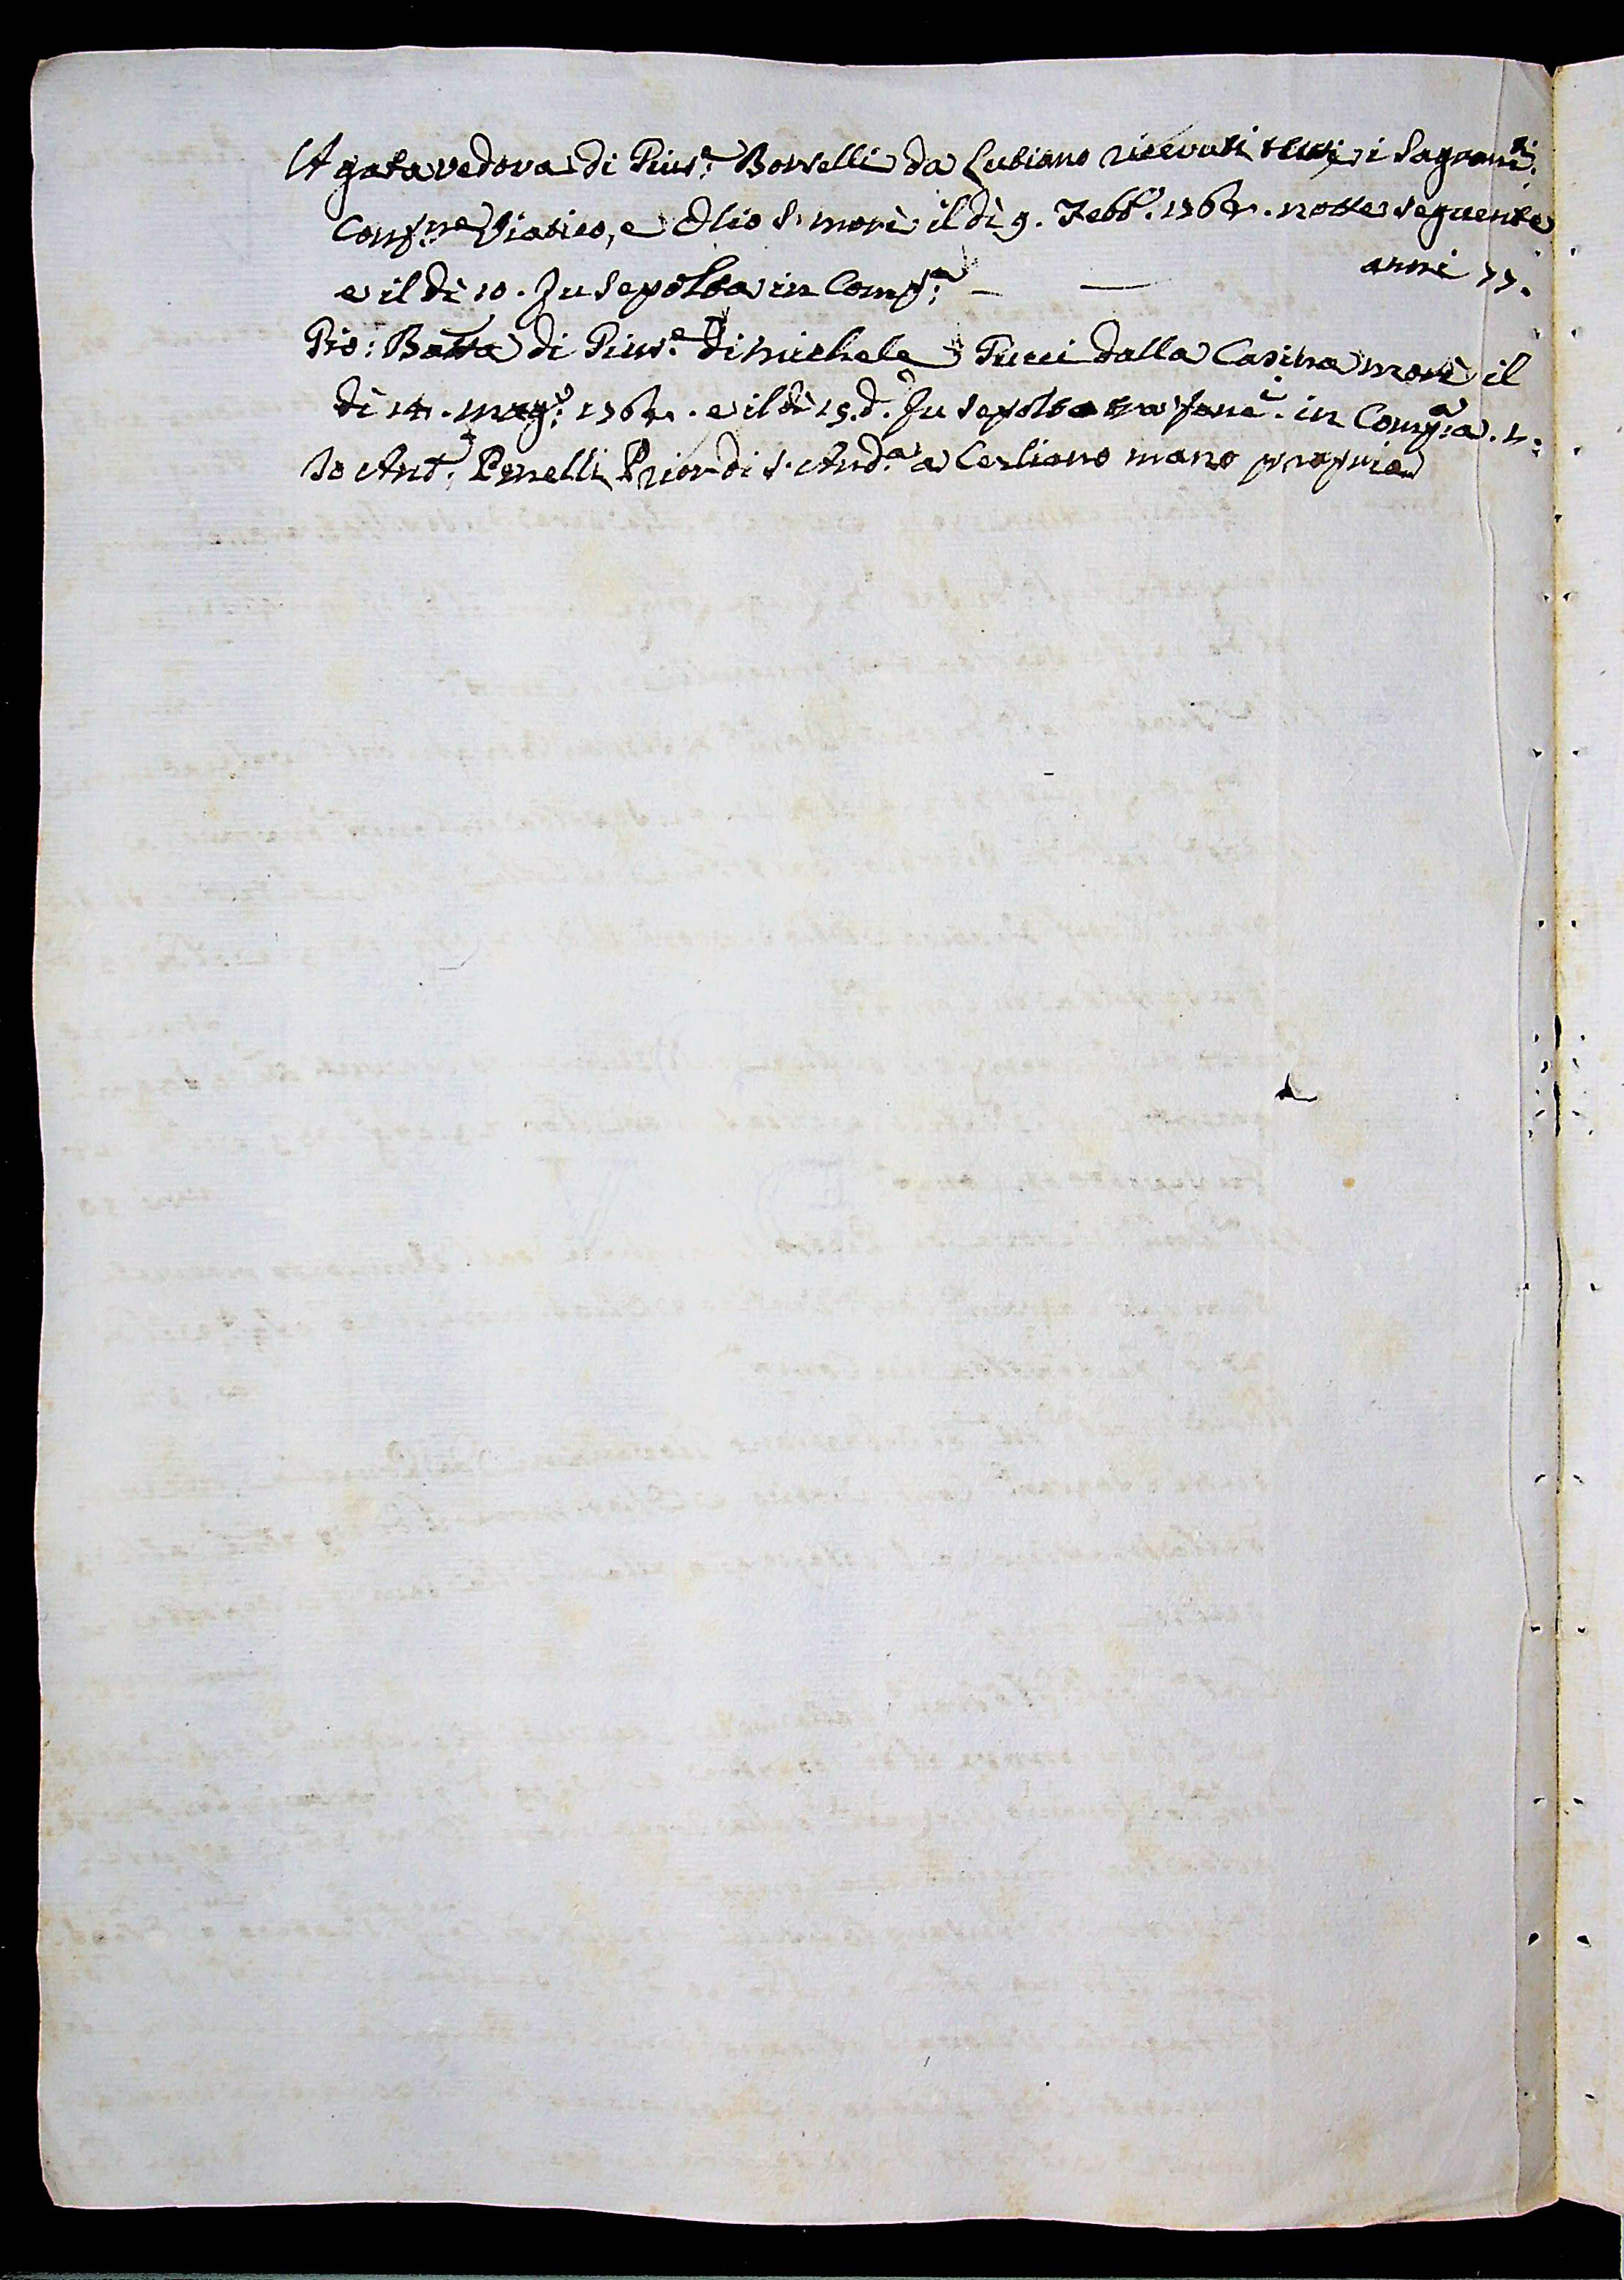 Agata vedova di Gius.e Borselli da Lubiano ricevuti tutti i Sagram.ti
Conf.ne Viatico, e Olio S. morì il dì 9. Febb.o 1764. notte seguente
e il dì 10. fu sepolta in Comp.a — — anni 77.
Gio: Batta di Gius.e di Michele Tucci dalla Casina morì il
dì 14. Mag.o 1764. e il dì 15. d.o fu sepolto tra fanc.i in Comp.a a. 1:
Io Ant.o Penelli Prior di S. And.a a Cerliano mano propria